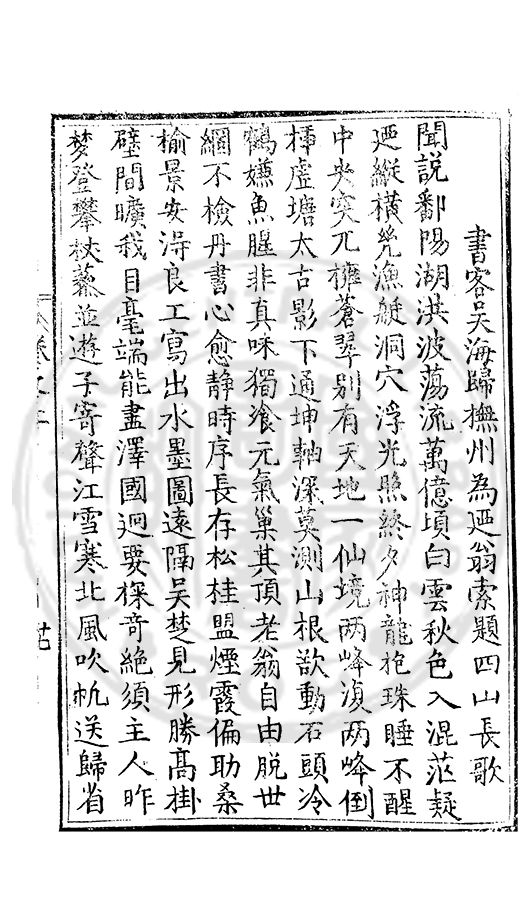 書客吴海歸撫州為廼翁索題四山長歌
聞說鄱陽湖洪波蕩流萬億頃白雲秋色入混茫疑
廼縱橫幾漁艇洞穴浮光照終夕神龍抱珠睡不醒
中央突兀擁蒼翠别有天地一仙境两峰復两峰倒
揷虚塘太古影下通坤軸深莫測山根欲動石頭冷
鶴嫌魚腥非真味獨飡元氣巢其頂老翁自由脱世
網不檢丹書心愈靜時序長存松桂盟煙霞偏助桑
榆景安淂良工寫出水墨圖遠隔吴楚見形勝髙掛
壁間曠我目毫端能盡澤國迥要探奇絶須主人昨
梦登攀杖藜並遊子寄聲江雪寒北風吹帆送歸省